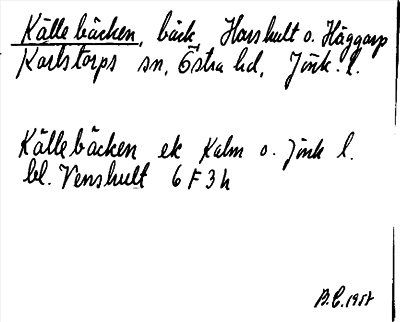 Källebäcken, bäck, Horshult o. Häggarp
Karlstorps sn, Östra hd, Jönk. l.
Källebäcken ek Kalm o. Jönk l.
bl. Venshult 6 F 3 h
B.C. 1957